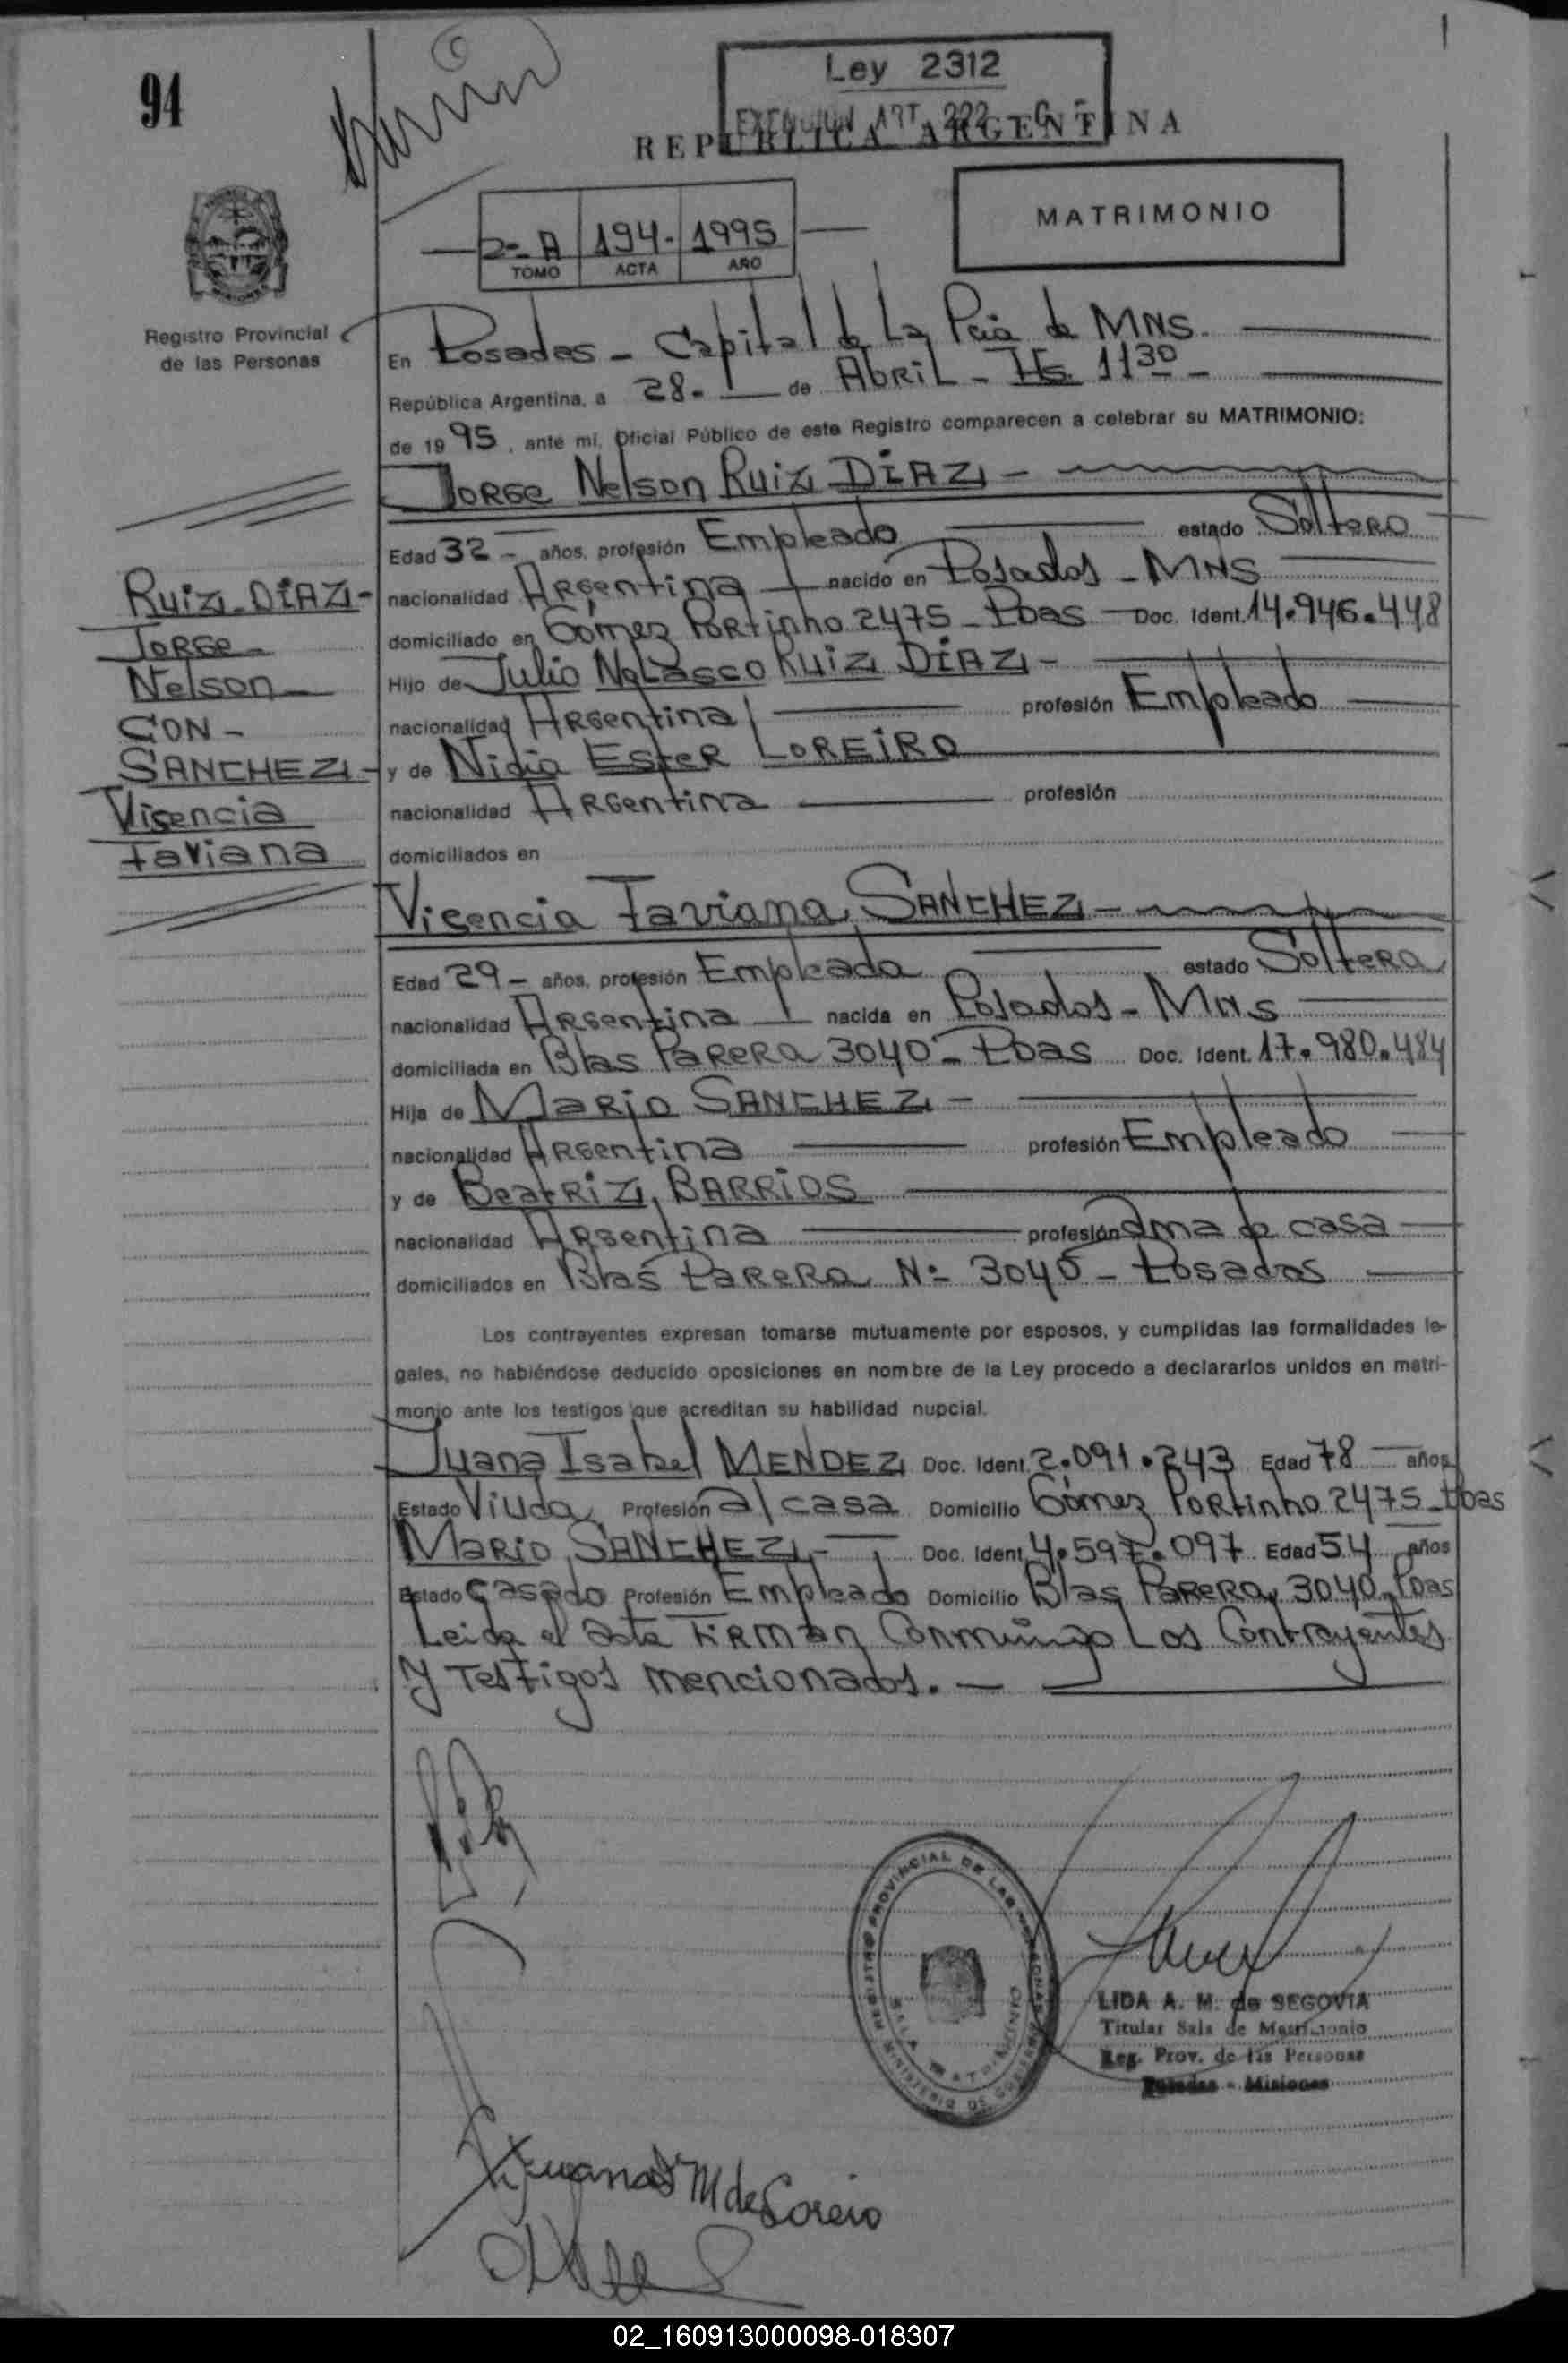 94
Ley 2312
EXENCION ART. 222
REPUBLICA ARGENTINA
MATRIMONIO
2º A 194- 1995
TOMO ACTA AÑO
Registro Provincial
de las Personas
En Posadas - Capital de La Pcia de MNS.
República Argentina, a 28- de Abril - Hs. 11 30 -
de 19 95, ante mí, Oficial Público de este Registro comparecen a celebrar su MATRIMONIO:
Jorge Nelson Ruiz DIAZ -
Edad 32 - años, profesión Empleado estado Soltero
nacionalidad Argentina nacido en Posadas - MNS
domiciliado en Gómez Portinho 2475 - Pdas Doc. Ident. 14.946.448
Hijo de Julio Nolasco Ruiz DIAZ -
nacionalidad Argentina profesión Empleado
y de Nidia Ester LOREIRO
nacionalidad Argentina profesión
domiciliados en
Ruiz - DIAZ -
Jorge -
Nelson
CON -
SANCHEZ -
Visencia
Faviana
Visencia Faviana SANCHEZ -
Edad 29 - años, profesión Empleada estado Soltera
nacionalidad Argentina nacida en Posadas - MNS
domiciliada en Blas Parera 3040 - Pdas Doc. Ident. 17.980.484
Hija de Mario SANCHEZ -
nacionalidad Argentina profesión Empleado
y de Beatriz BARRIOS
nacionalidad Argentina profesión Ama de casa
domiciliados en Blas Parera Nº 3040 - Posadas
Los contrayentes expresan tomarse mutuamente por esposos, y cumplidas las formalidades le-
gales, no habiéndose deducido oposiciones en nombre de la Ley procedo a declararlos unidos en matri-
monio ante los testigos que acreditan su habilidad nupcial.
Juana Isabel MENDEZ Doc. Ident. 2.091.243 Edad 78 años
Estado Viuda Profesión a/casa Domicilio Gómez Portinho 2475 - Pdas
Mario SANCHEZ - Doc. Ident. 4.597.097 Edad 54 años
Estado Casado Profesión Empleado Domicilio Blas Parera 3040 - Pdas
Leida el acta Firman Conmingo Los Contrayentes
Y Testigos mencionados. -
REGISTRO PROVINCIAL DE LAS PERSONAS
SALA MATRIMONIO
MINISTERIO DE GOBIERNO
LIDA A. M. de SEGOVIA
Titular Sala de Matrimonio
Reg. Prov. de las Personas
Posadas - Misiones
Juana M de Loreiro
02_160913000098-018307